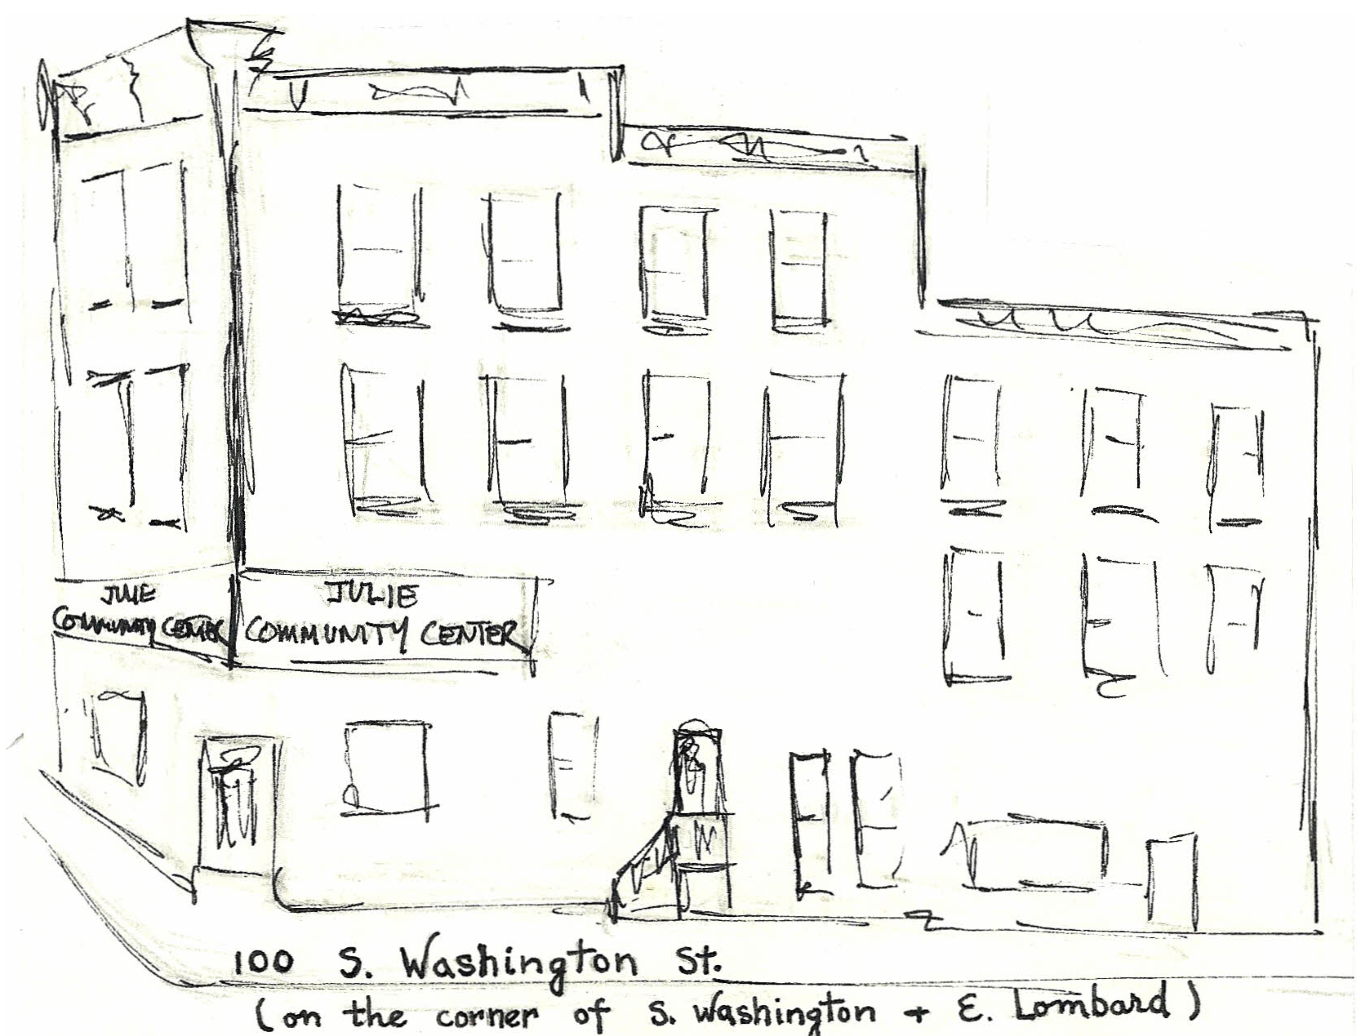 JULIE
COMMUNITY CENTER
JULIE
COMMUNITY CENTER
100 S. Washington St.
(on the corner of S. Washington + E. Lombard)